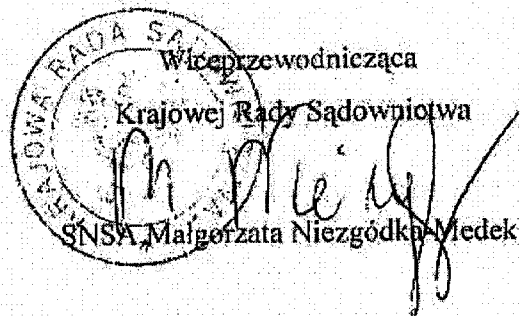 KRAJOWA RADA SĄ
Wiceprzewodnicząca
Krajowej Rady Sądownictwa
SNSA Małgorzata Niezgódka-Medek